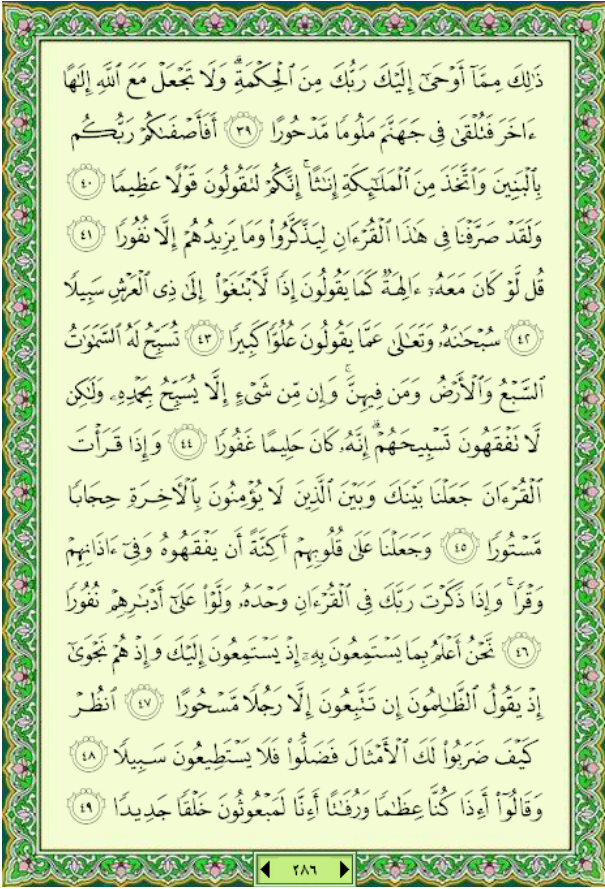 ذَٰلِكَ مِمَّآ أَوْحَىٰٓ إِلَيْكَ رَبُّكَ مِنَ ٱلْحِكْمَةِ ۗ وَلَا تَجْعَلْ مَعَ ٱللَّهِ إِلَٰهًا
ءَاخَرَ فَتُلْقَىٰ فِى جَهَنَّمَ مَلُومًا مَّدْحُورًا ﴿٣٩﴾ أَفَأَصْفَىٰكُمْ رَبُّكُم
بِٱلْبَنِينَ وَٱتَّخَذَ مِنَ ٱلْمَلَٰٓئِكَةِ إِنَٰثًا ۚ إِنَّكُمْ لَتَقُولُونَ قَوْلًا عَظِيمًا ﴿٤٠﴾
وَلَقَدْ صَرَّفْنَا فِى هَٰذَا ٱلْقُرْءَانِ لِيَذَّكَّرُوا۟ وَمَا يَزِيدُهُمْ إِلَّا نُفُورًا ﴿٤١﴾
قُل لَّوْ كَانَ مَعَهُۥٓ ءَالِهَةٌ كَمَا يَقُولُونَ إِذًا لَّٱبْتَغَوْا۟ إِلَىٰ ذِى ٱلْعَرْشِ سَبِيلًا
﴿٤٢﴾ سُبْحَٰنَهُۥ وَتَعَٰلَىٰ عَمَّا يَقُولُونَ عُلُوًّا كَبِيرًا ﴿٤٣﴾ تُسَبِّحُ لَهُ ٱلسَّمَٰوَٰتُ
ٱلسَّبْعُ وَٱلْأَرْضُ وَمَن فِيهِنَّ ۚ وَإِن مِّن شَىْءٍ إِلَّا يُسَبِّحُ بِحَمْدِهِۦ وَلَٰكِن
لَّا تَفْقَهُونَ تَسْبِيحَهُمْ ۗ إِنَّهُۥ كَانَ حَلِيمًا غَفُورًا ﴿٤٤﴾ وَإِذَا قَرَأْتَ
ٱلْقُرْءَانَ جَعَلْنَا بَيْنَكَ وَبَيْنَ ٱلَّذِينَ لَا يُؤْمِنُونَ بِٱلْءَاخِرَةِ حِجَابًا
مَّسْتُورًا ﴿٤٥﴾ وَجَعَلْنَا عَلَىٰ قُلُوبِهِمْ أَكِنَّةً أَن يَفْقَهُوهُ وَفِىٓ ءَاذَانِهِمْ
وَقْرًا ۚ وَإِذَا ذَكَرْتَ رَبَّكَ فِى ٱلْقُرْءَانِ وَحْدَهُۥ وَلَّوْا۟ عَلَىٰٓ أَدْبَٰرِهِمْ نُفُورًا
﴿٤٦﴾ نَّحْنُ أَعْلَمُ بِمَا يَسْتَمِعُونَ بِهِۦٓ إِذْ يَسْتَمِعُونَ إِلَيْكَ وَإِذْ هُمْ نَجْوَىٰٓ
إِذْ يَقُولُ ٱلظَّٰلِمُونَ إِن تَتَّبِعُونَ إِلَّا رَجُلًا مَّسْحُورًا ﴿٤٧﴾ ٱنظُرْ
كَيْفَ ضَرَبُوا۟ لَكَ ٱلْأَمْثَالَ فَضَلُّوا۟ فَلَا يَسْتَطِيعُونَ سَبِيلًا ﴿٤٨﴾
وَقَالُوٓا۟ أَءِذَا كُنَّا عِظَٰمًا وَرُفَٰتًا أَءِنَّا لَمَبْعُوثُونَ خَلْقًا جَدِيدًا ﴿٤٩﴾
٢٨٦